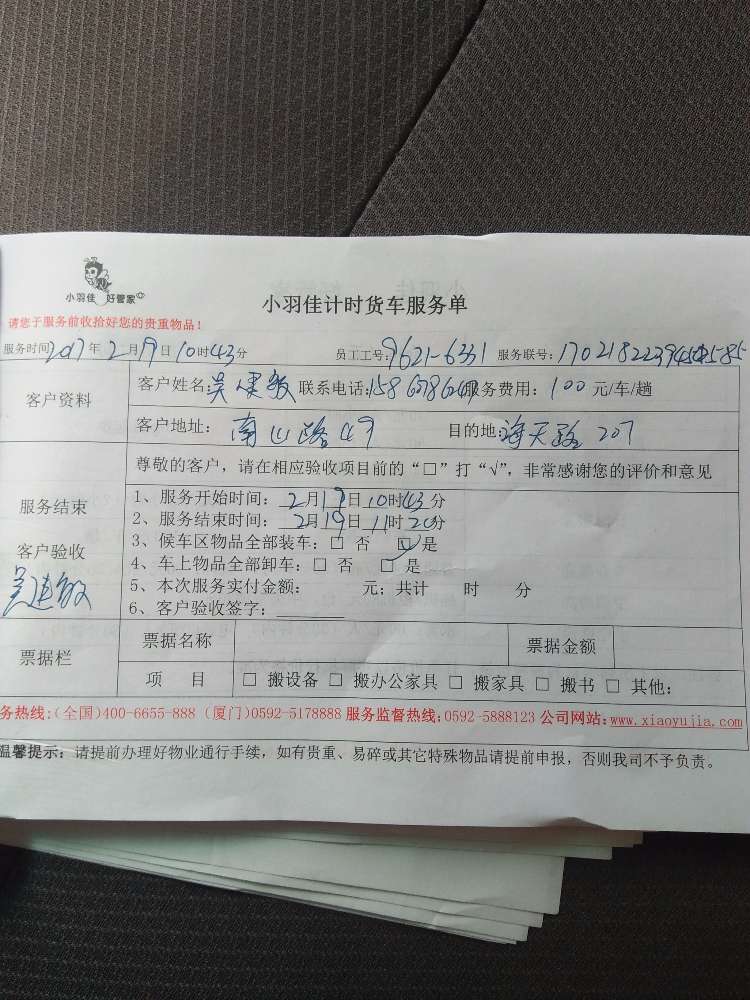 小羽佳 好管家
小羽佳计时货车服务单
请您于服务前收拾好您的贵重物品！
服务时间2017年2月19日10时43分 员工工号：9621-6331 服务联号：
客户资料
客户姓名： 联系电话： 服务费用：100元/车/趟
客户地址：南山路49 目的地：海天路207
尊敬的客户，请在相应验收项目前的“□”打“√”，非常感谢您的评价和意见
服务结束
客户验收
1、服务开始时间：2月19日10时43分
2、服务结束时间：2月19日11时20分
3、候车区物品全部装车：□ 否 ☑ 是
4、车上物品全部卸车：□ 否 □ 是
5、本次服务实付金额： 元；共计 时 分
6、客户验收签字：
票据栏
票据名称 票据金额
项 目 □ 搬设备 □ 搬办公家具 □ 搬家具 □ 搬书 □ 其他：
务热线：（全国）400-6655-888（厦门）0592-5178888 服务监督热线：0592-5888123 公司网站：www.xiaoyujia.com
温馨提示：请提前办理好物业通行手续，如有贵重、易碎或其它特殊物品请提前申报，否则我司不予负责。